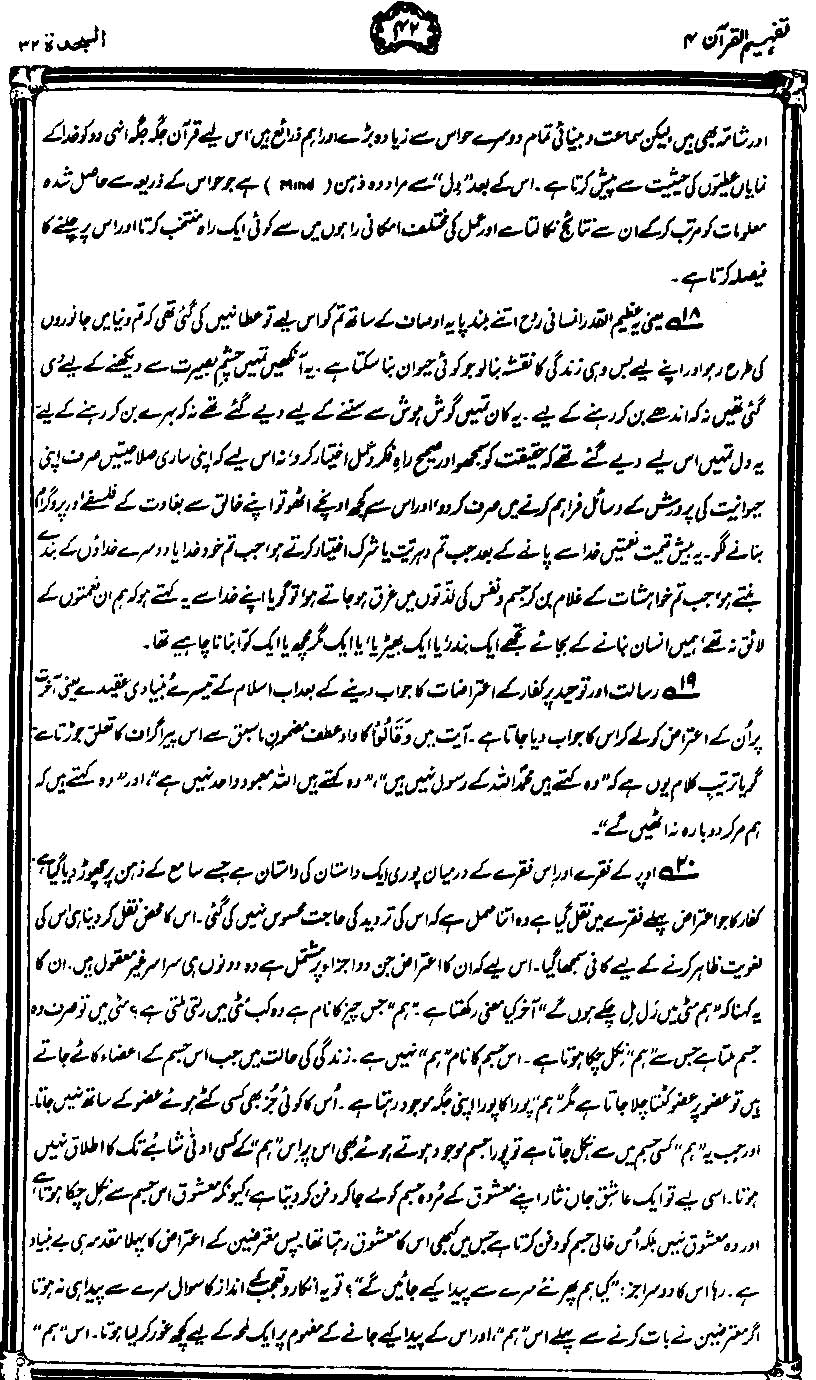 تفہیم القرآن ۴
۴۲
السجدۃ ۳۲
اور شامّہ بھی ہیں لیکن سماعت و بینائی تمام دوسرے حواس سے زیادہ بڑے اور اہم ذرائع ہیں، اس لیے قرآن جگہ جگہ انہی دو کو خدا کے
نمایاں عطیّوں کی حیثیت سے پیش کرتا ہے۔ اس کے بعد ”دل“ سے مراد وہ ذہن (Mind) ہے جو حواس کے ذریعہ سے حاصل شدہ
معلومات کو مرتب کر کے ان سے نتائج نکالتا ہے اور عمل کی مختلف امکانی راہوں میں سے کوئی ایک راہ منتخب کرتا اور اس پر چلنے کا
فیصلہ کرتا ہے۔
۱۸ یعنی یہ عظیم القدر انسانی روح اتنے بلند پایہ اوصاف کے ساتھ تم کو اس لیے تو عطا نہیں کی گئی تھی کہ تم دنیا میں جانوروں
کی طرح رہو اور اپنے لیے بس وہی زندگی کا نقشہ بنا لو جو کوئی حیوان بنا سکتا ہے۔ یہ آنکھیں تمہیں چشمِ بصیرت سے دیکھنے کے لیے دی
گئی تھیں نہ کہ اندھے بن کر رہنے کے لیے۔ یہ کان تمہیں گوش ہوش سے سننے کے لیے دیے گئے تھے نہ کہ بہرے بن کر رہنے کے لیے۔
یہ دل تمہیں اس لیے دیے گئے تھے کہ حقیقت کو سمجھو اور صحیح راہِ فکر و عمل اختیار کرو، نہ اس لیے کہ اپنی ساری صلاحیتیں صرف اپنی
حیوانیت کی پرورش کے وسائل فراہم کرنے میں صرف کر دو، اور اس سے کچھ اونچے اٹھو تو اپنے خالق سے بغاوت کے فلسفے اور پروگرام
بنانے لگو۔ یہ بیش قیمت نعمتیں خدا سے پانے کے بعد جب تم دہریّت یا شرک اختیار کرتے ہو، جب تم خود خدا یا دوسرے خداؤں کے بندے
بنتے ہو، جب تم خواہشات کے غلام بن کر جسم و نفس کی لذّتوں میں غرق ہو جاتے ہو تو گویا اپنے خدا سے یہ کہتے ہو کہ ہم ان نعمتوں کے
لائق نہ تھے، ہمیں انسان بنانے کے بجائے تجھے ایک بندر، یا ایک بھیڑیا، یا ایک مگرمچھ یا ایک کوّا بنانا چاہیے تھا۔
۱۹ رسالت اور توحید پر کفار کے اعتراضات کا جواب دینے کے بعد اب اسلام کے تیسرے بنیادی عقیدے یعنی آخرت
پر اُن کے اعتراض کو لے کر اس کا جواب دیا جاتا ہے۔ آیت میں وَقَالُوْا کا واؤ عطف مضمونِ ماسبق سے اس پیراگراف کا تعلق جوڑتا ہے۔
گویا ترتیبِ کلام یوں ہے کہ ”وہ کہتے ہیں محمدؐ اللہ کے رسول نہیں ہیں“، ”وہ کہتے ہیں اللہ معبودِ واحد نہیں ہے“، اور ”وہ کہتے ہیں کہ
ہم مر کر دوبارہ نہ اٹھیں گے“۔
۲۰ اوپر کے فقرے اور اِس فقرے کے درمیان پوری ایک داستان کی داستان ہے جسے سامع کے ذہن پر چھوڑ دیا گیا ہے
کفار کا جو اعتراض پہلے فقرے میں نقل کیا ہے وہ اتنا مہمل ہے کہ اس کی تردید کی حاجت محسوس نہیں کی گئی۔ اس کا محض نقل کر دینا ہی اس کی
لغویت ظاہر کرنے کے لیے کافی سمجھا گیا۔ اس لیے کہ ان کا اعتراض جن دو اجزاء پر مشتمل ہے وہ دونوں ہی سراسر غیر معقول ہیں۔ ان کا
یہ کہنا کہ ”ہم مٹی میں رَل مِل چکے ہوں گے“ آخر کیا معنی رکھتا ہے۔ ”ہم“ جس چیز کا نام ہے وہ کب مٹی میں رلتی ملتی ہے؟ مٹی میں تو صرف وہ
جسم ملتا ہے جس سے ”ہم“ نکل چکا ہوتا ہے۔ اس جسم کا نام ”ہم“ نہیں ہے۔ زندگی کی حالت میں جب اس جسم کے اعضاء کاٹے جاتے
ہیں تو عضو پر عضو کٹتا چلا جاتا ہے مگر ”ہم“ پورا کا پورا اپنی جگہ موجود رہتا ہے۔ اُس کا کوئی جُز بھی کسی کٹے ہوئے عضو کے ساتھ نہیں جاتا۔
اور جب یہ ”ہم“ کسی جسم میں سے نکل جاتا ہے تو پورا جسم موجود ہوتے ہوئے بھی اس پر اِس ”ہم“ کے کسی ادنیٰ شائبے تک کا اطلاق نہیں
ہوتا۔ اسی لیے تو ایک عاشقِ جاں نثار اپنے معشوق کے مُردہ جسم کو لے جا کر دفن کر دیتا ہے، کیونکہ معشوق اس جسم سے نکل چکا ہوتا ہے
اور وہ معشوق نہیں بلکہ اُس خالی جسم کو دفن کرتا ہے جس میں کبھی اس کا معشوق رہتا تھا۔ پس معترضین کے اعتراض کا پہلا مقدمہ ہی بے بنیاد
ہے۔ رہا اس کا دوسرا جز: ”کیا ہم پھر نئے سرے سے پیدا کیے جائیں گے“؟ تو یہ انکار و تعجب کے انداز کا سوال سرے سے پیدا ہی نہ ہوتا
اگر معترضین نے بات کرنے سے پہلے اس ”ہم“، اور اس کے پیدا کیے جانے کے مفہوم پر ایک لمحہ کے لیے کچھ غور کر لیا ہوتا۔ اس ”ہم“